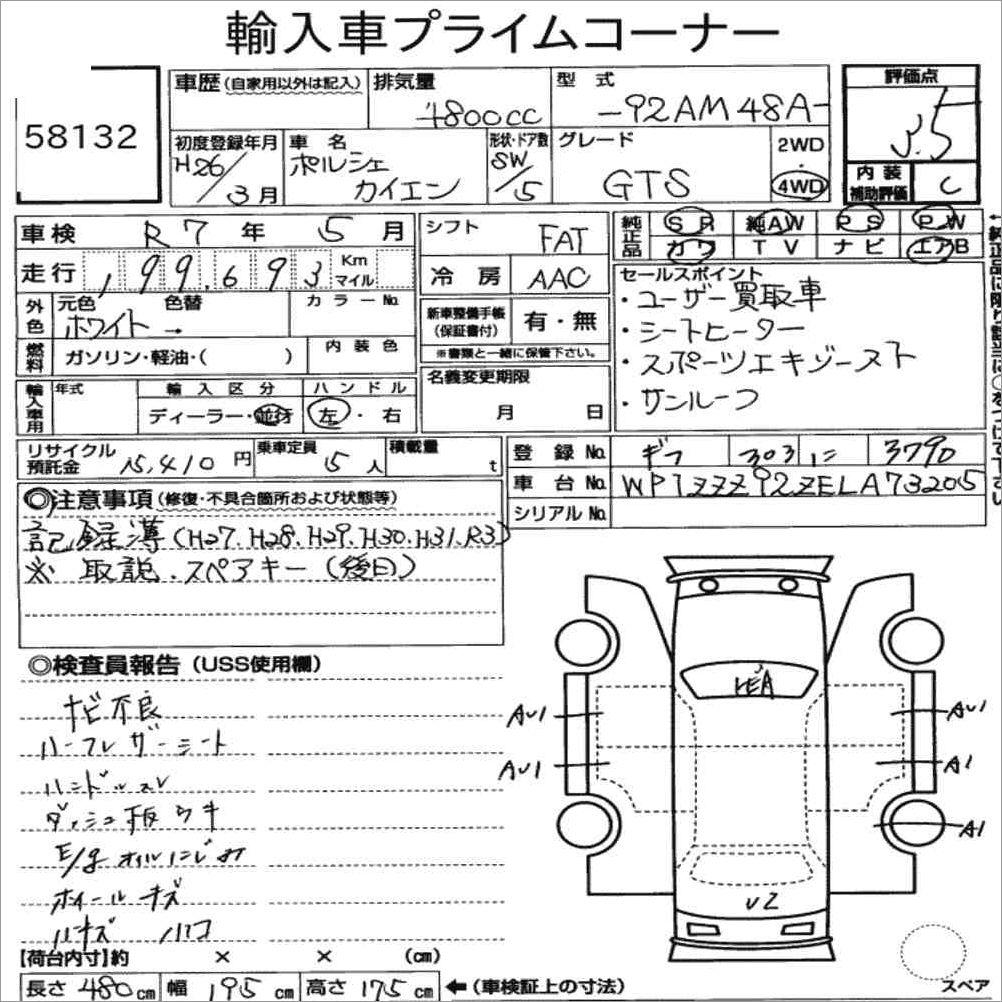 輸入車プライムコーナー
58132
車歴(自家用以外は記入) 排気量 4800cc 型式 -92AM48A-
評価点 3.5
初度登録年月 H26/3月 車名 ポルシェ カイエン 形状・ドア数 SW/5 グレード GTS 2WD・4WD
内装補助評価 C
車検 R7年 5月 シフト FAT
純正品 SR 純AW PS PW
カワ TV ナビ エアB
走行 199,693 Km マイル 冷房 AAC
外色 元色 ホワイト → 色替 カラーNo.
新車整備手帳(保証書付) 有・無
※書類と一緒に保管下さい。
セールスポイント
・ユーザー買取車
・シートヒーター
・スポーツエキゾースト
・サンルーフ
燃料 ガソリン・軽油・( ) 内装色
名義変更期限 月 日
輸入車用 年式 輸入区分 ディーラー・並行 ハンドル 左・右
リサイクル預託金 15,410円 乗車定員 5人 積載量 t
登録No. ギフ 303 に 3790
車台No. WP1ZZZ92ZELA73205
シリアルNo.
◎注意事項(修復・不具合箇所および状態等)
記録簿(H27.H28.H29.H30.H31.R3)
※ 取説.スペアキー(後日)
◎検査員報告(USS使用欄)
ナビ不良
ハーフレザーシート
ハンドルスレ
ダッシュ板ウキ
E/gオイルにじみ
ホイールキズ
AU1
AU1
AU1
A1
A1
U2
スペア
【荷台内寸】約 × × (cm)
長さ 480cm 幅 195cm 高さ 175cm ←(車検証上の寸法)